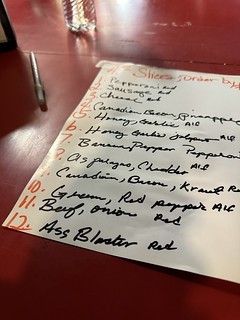 Slices, Order by #
1. Pepperoni Red
2. Sausage Red
3. Cheese Red
4. Canadian Bacon, Pineapple
5. Honey, Garlic Alf
6. Honey Garlic Jalapeno Alf
7. Banana Pepper Pepperoni
8. Asparagus, Cheddar Alf
9. Canadian, Bacon, Kraut Red
10. Green, Red pepper Alf
11. Beef, onion Red
12. Ass Blaster Red